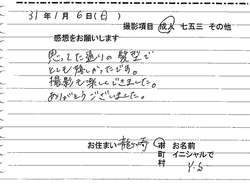 31年1月6日(日)
撮影項目 成人 七五三 その他
感想をお願いします
思ってた通りの髪型で
とても嬉しかったです。
撮影も楽しくできました。
ありがとうございました。
お住まい 龍ヶ崎 市町村
お名前 イニシャルで
Y.S